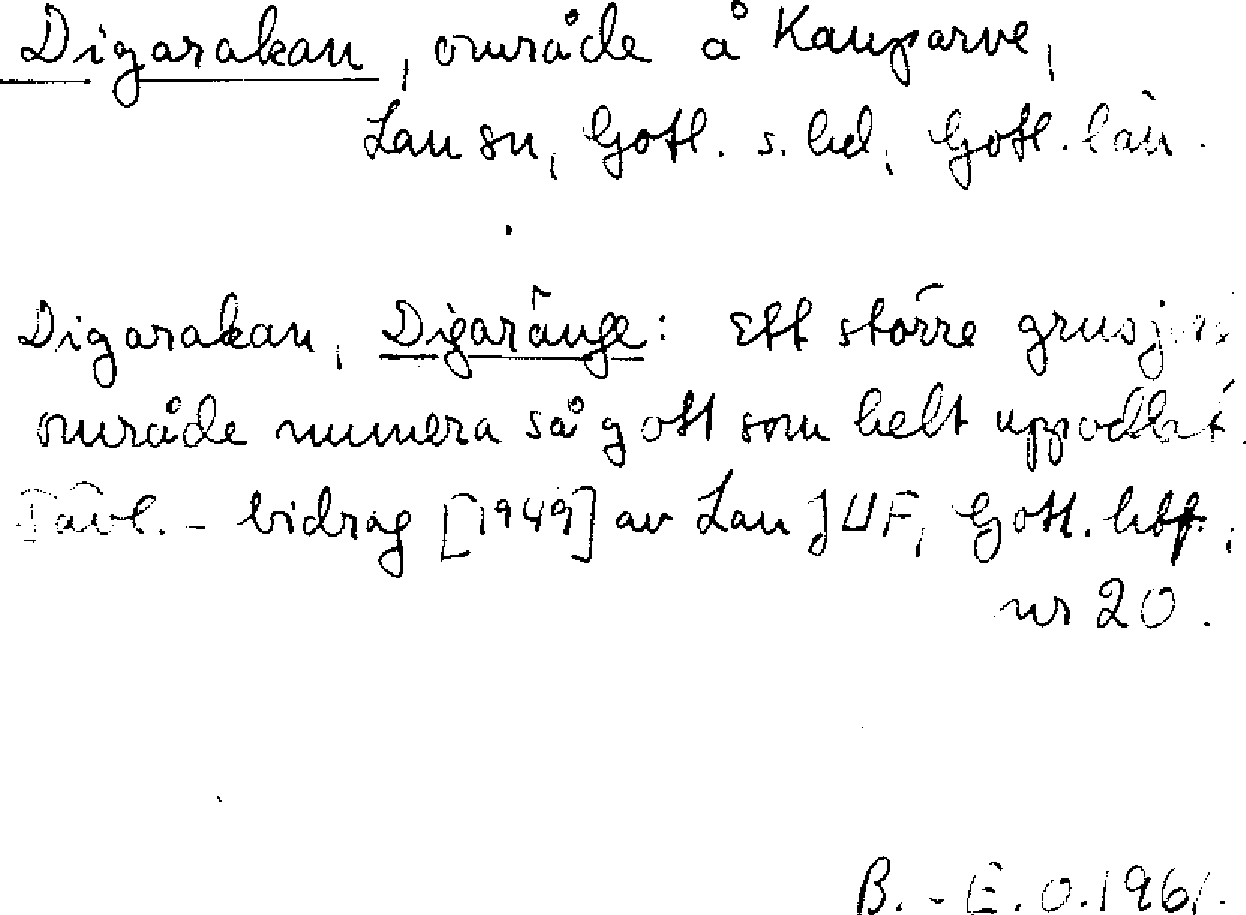 Digarakan, område å Kauparve,
Lau sn, Gotl. s. hd, Gotl. län.
Digarakan, Digaränge: Ett större
område numera så gott som helt uppodlat.
Tävl. - bidrag [1949] av Lau JUF, Gotl. hbf.,
nr 20.
B. - E. O. 1961.